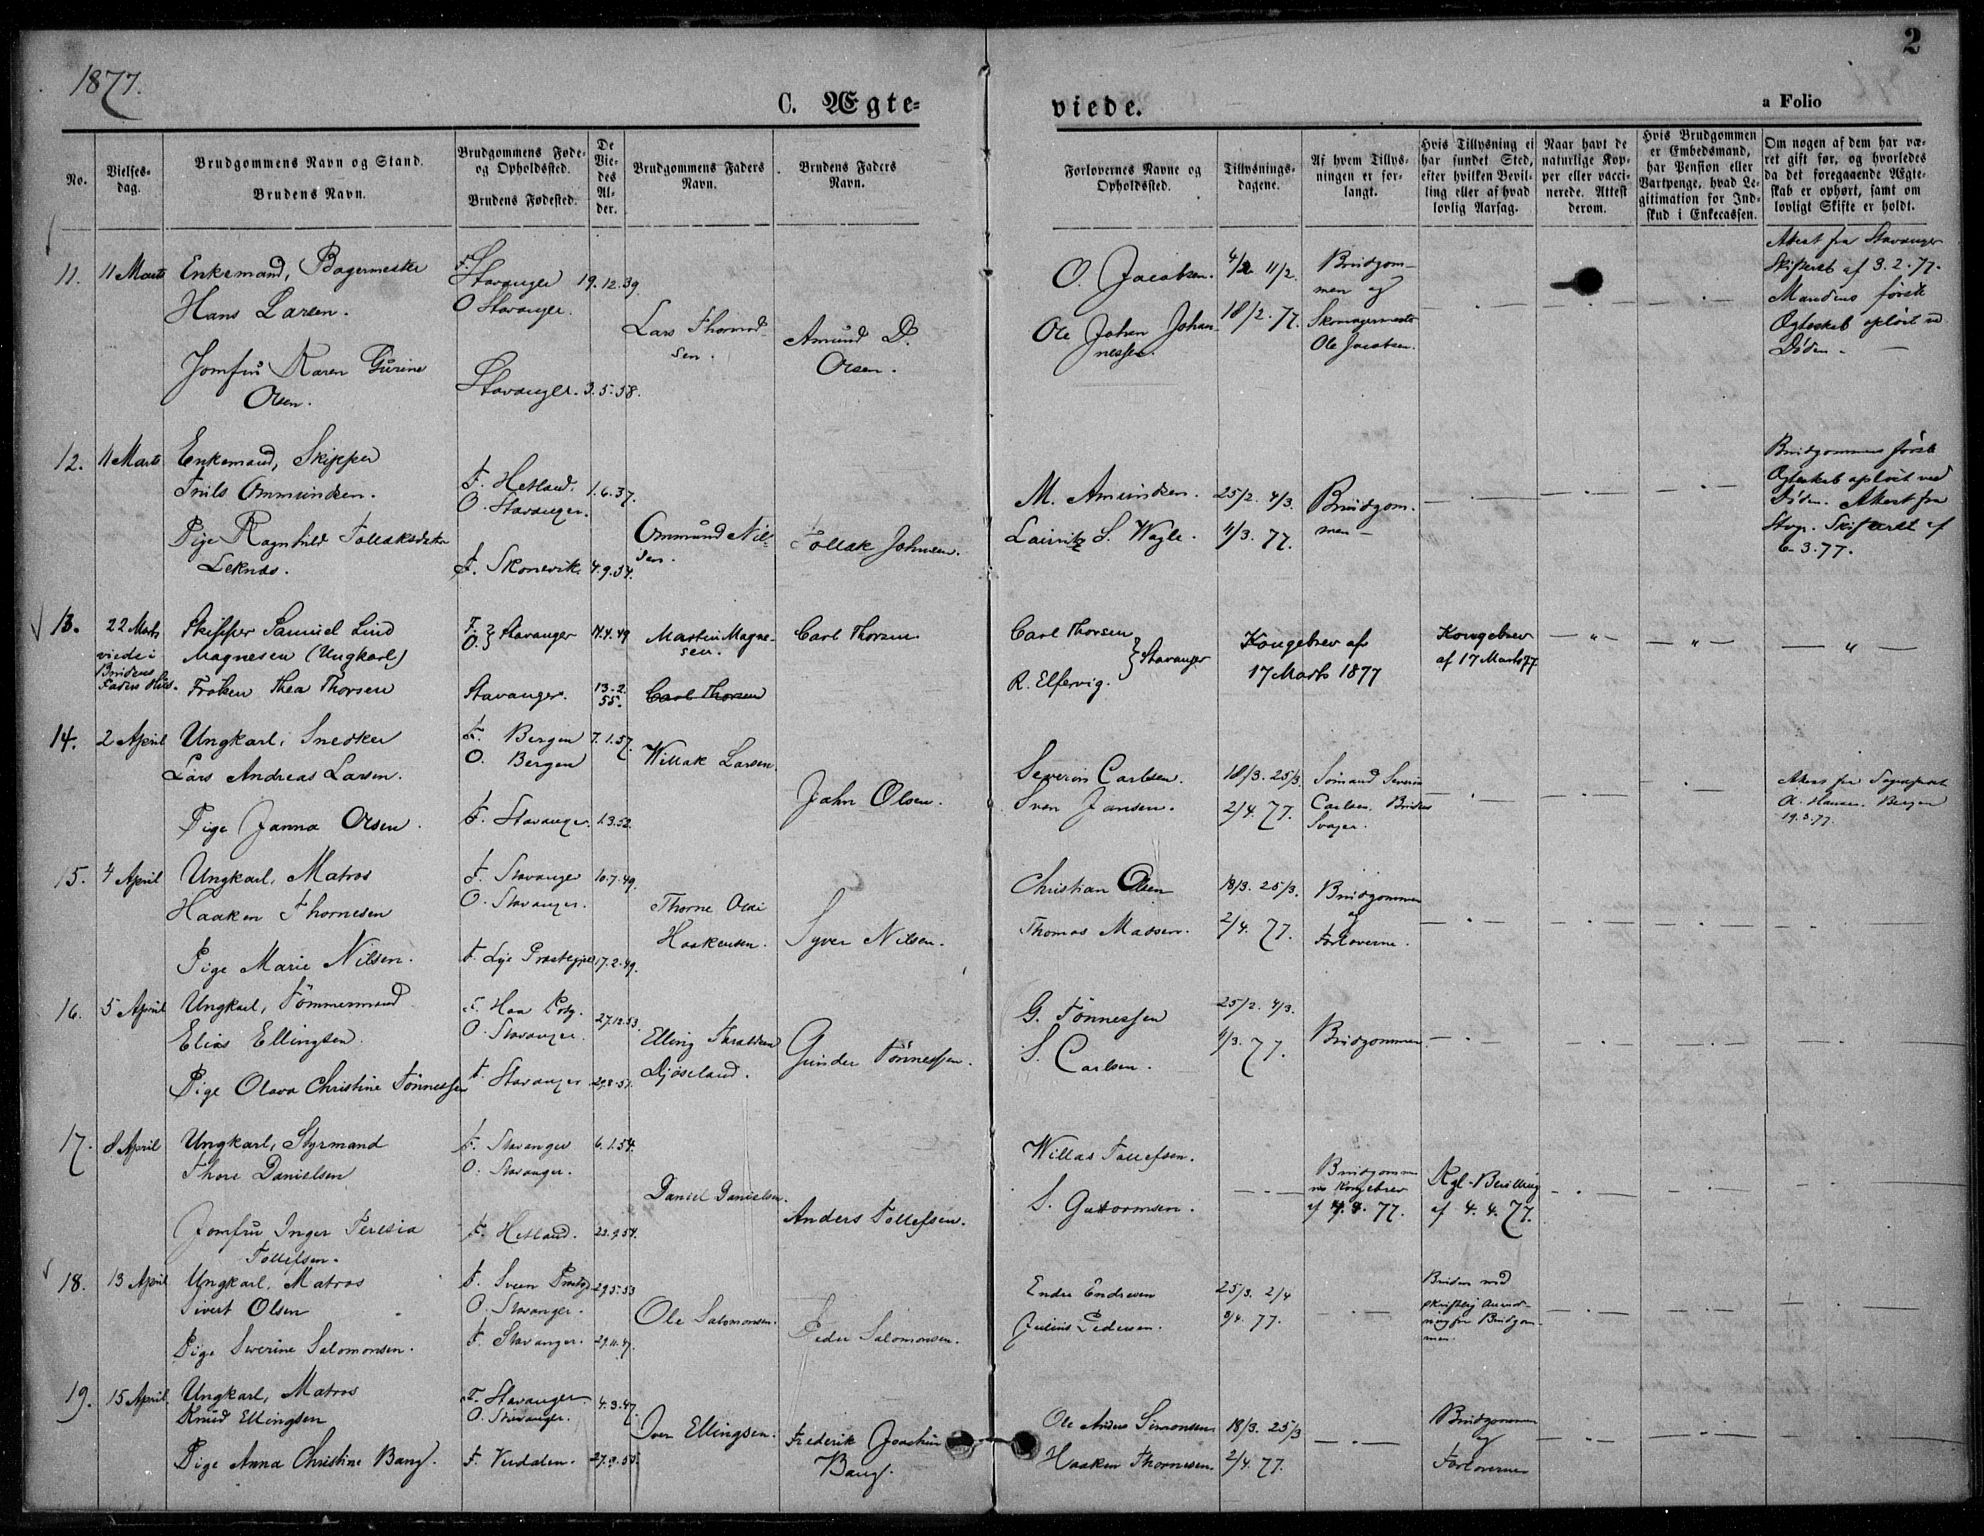 1877.
2
C. Ægte=
viede.
a Folio
No.
Vielses-
dag.
Brudgommens Navn og Stand.
Brudens Navn.
Brudgommens Føde-
og Opholdssted.
Brudens Fødested.
De
Vie-
des
Al-
der.
Brudgommens Faders
Navn.
Brudens Faders
Navn.
Forlovernes Navne og
Opholdssted.
Tillysnings-
dagene.
Af hvem Tillys-
ningen er for-
langt.
Hvis Tillysning ei
har fundet Sted,
efter hvilken Bevil-
ling eller af hvad
lovlig Aarsag.
Naar havt de
naturlige Kop-
per eller vacci-
nerede. Attest
derom.
Hvis Brudgommen
er Embedsmand,
har Pension eller
Vartpenge, hvad Le-
gitimation for Ind-
skud i Enkecassen.
Om nogen af dem har væ-
ret gift før, og hvorledes
da det foregaaende Ægte-
skab er ophørt, samt om
lovligt Skifte er holdt.
11.
11 Marts
Enkemand, Bagermester
Hans Larsen.
Jomfru Karen Gurine
Olsen.
F. Stavanger
O Stavanger.
Stavanger.
19.12.39.
3.5.58.
Lars Thomas
sen.
Amund D.
Olsen.
O. Jacobsen.
Ole Johan Johan-
nessen.
4/2. 11/2.
18/2. 77.
Brudgom-
men og
Skomagermester
Ole Jacobsen.
Attest fra Stavanger
Skifteret af 3.2.77.
Mandens første
Ægteskab opløst v
Døden.
12.
11 Marts
Enkemand, Skipper
Nils Ommundsen.
Pige Ragnhild Tollaksdatter
Leknes.
F. Hetland.
O. Stavanger.
F. Skonevik
1.6.37.
4.9.54.
Ommund Nil-
sen.
Tollak Johnsen.
M. Amundsen.
Lauritz S. Wagle.
25/2. 4/3.
11/3. 77.
Brudgom-
men
Brudgommens første
Ægteskab opløst ved
Døden. Attest fra
Stvgr. Skifteret af
6.3.77.
13.
22 Marts
viede i
Brudens
Faders Hus.
Skipper Samuel Lind
Magnesen (Ungkarl)
Frøken Thea Thorsen
F. } Stavanger
O.
Stavanger.
17.4.49
13.2.
55.
Martin Magne-
sen.
Carl Thorsen
Carl Thorsen.
Carl Thorsen
R. Elfervig. } Stavanger
Kongebrev af
17 Marts 1877
Kongebrev
af 17 Marts 77.
14.
2 April
Ungkarl, Snedker
Lars Andreas Larsen.
Pige Janna Olsen.
F. Bergen
O. Bergen
F. Stavanger.
7.1.57.
1.3.52.
Willak Larsen.
John Olsen.
Severin Carlsen.
Sven Jansen.
18/3. 25/3
2/4. 77.
Sømand Severin
Carlsen. Brudens
Svoger.
Attest fra Sognepræst
Hansen. Bergen
19.3.77.
15.
4 April
Ungkarl, Matros
Haaken Thornesen
Pige Marie Nilsen.
F. Stavanger
O. Stavanger.
F. Lye Præstegjeld
10.7.49.
17.2.49.
Thorne Olai
Haakensen.
Syver Nilsen.
Christian Olsen
Thomas Madsen.
18/3. 25/3.
2/4. 77.
Brudgommen
og
Forloverne.
16.
5 April
Ungkarl, Tømmermand
Elias Ellingsen.
Pige Olava Christine Tønnessen
F. Haa Pstg.
O. Stavanger.
F. Stavanger
27.12.53.
29.8.51.
Elling Tharaldsen
Njøseland.
Gunder Tønnessen.
G. Tønnessen
S. Carlsen.
25/2. 4/3.
11/3. 77.
Brudgommen.
17.
8 April
Ungkarl, Styrmand
Thore Danielsen
Jomfru Inger Teresia
Tollefsen.
F. Stavanger
O. Stavanger.
F. Hetland.
6.1.54.
22.9.54.
Daniel Danielsen.
Anders Tollefsen.
Willas Tollefsen.
S. Guttormsen.
Brudgommen
Kongebrev
af 4.4.77.
Kgl. Bevilling
af 4.4.77.
18.
13 April
Ungkarl, Matros
Sivert Olsen
Pige Severine Salomonsen.
F. Sveen Præstgj
O. Stavanger.
F. Stavanger.
29.5.53
29.11.47.
Ole Salomonsen.
Peder Salomonsen.
Endre Endresen
Julius Pedersen.
25/3. 2/4
8/4. 77.
Bruden med
skriftlig Anmod-
ning fra Brudgom-
men.
19.
15 April
Ungkarl, Matros
Knud Ellingsen
Pige Anna Christine Bang.
F. Stavanger
O. Stavanger.
F. Verdalen.
4.3.47.
27.9.55.
Iver Ellingsen.
Frederik Joachim
Bang.
Ole Anders Simonsen
Haaken Thornesen.
18/3. 25/3
2/4. 77.
Brudgommen
og
Forloverne